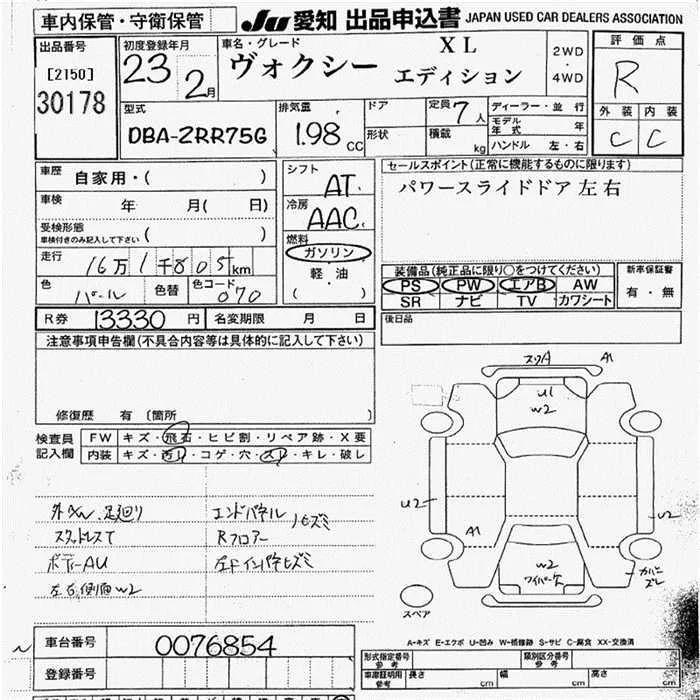 車内保管・守衛保管
JU 愛知 出品申込書 JAPAN USED CAR DEALERS ASSOCIATION
出品番号
[2150]
30178
初度登録年月
23年 2月
車名・グレード
ヴォクシー
XL
エディション
2WD
・
4WD
評価点
R
外装 内装
C C
型式
DBA-ZRR75G
排気量
1.98 CC
ドア
形状
定員 7人
積載 kg
ディーラー・並行
モデル年式 年
ハンドル 左・右
車歴 自家用・( )
車検 年 月( 日)
受検形態
車検付きのみ記入して下さい ( )
走行 16万1千805km
色 パール 色替 色コード 070
シフト AT
冷房 AAC
燃料
ガソリン
軽・油
( )
セールスポイント(正常に機能するものに限ります)
パワースライドドア 左右
装備品(純正品に限り○をつけてください)
PS PW エアB AW
SR ナビ TV カワシート
新車保証書
有・無
R券 13330円 名変期限 月 日
後日品
注意事項申告欄(不具合内容等は具体的に記入して下さい)
修復歴 有〔箇所 〕
検査員
記入欄
FW キズ・飛石・ヒビ割・リペア跡・X要
内装 キズ・汚レ・コゲ・穴・スレ・キレ・破レ
足廻り エンドパネル
Rフロアー
ボディーAU
左右側面W2
スリA A1
U1
W2
U2
U2
A1
W2
ワイパー欠
カバーズレ
スペア
A-キズ E-エクボ U-凹み W-補修跡 S-サビ C-腐食 XX-交換済
車台番号 0076854
登録番号
型式指定番号
参考
類別区分番号
参考
車庫証明用
参考
長さ cm 幅 cm 高さ cm